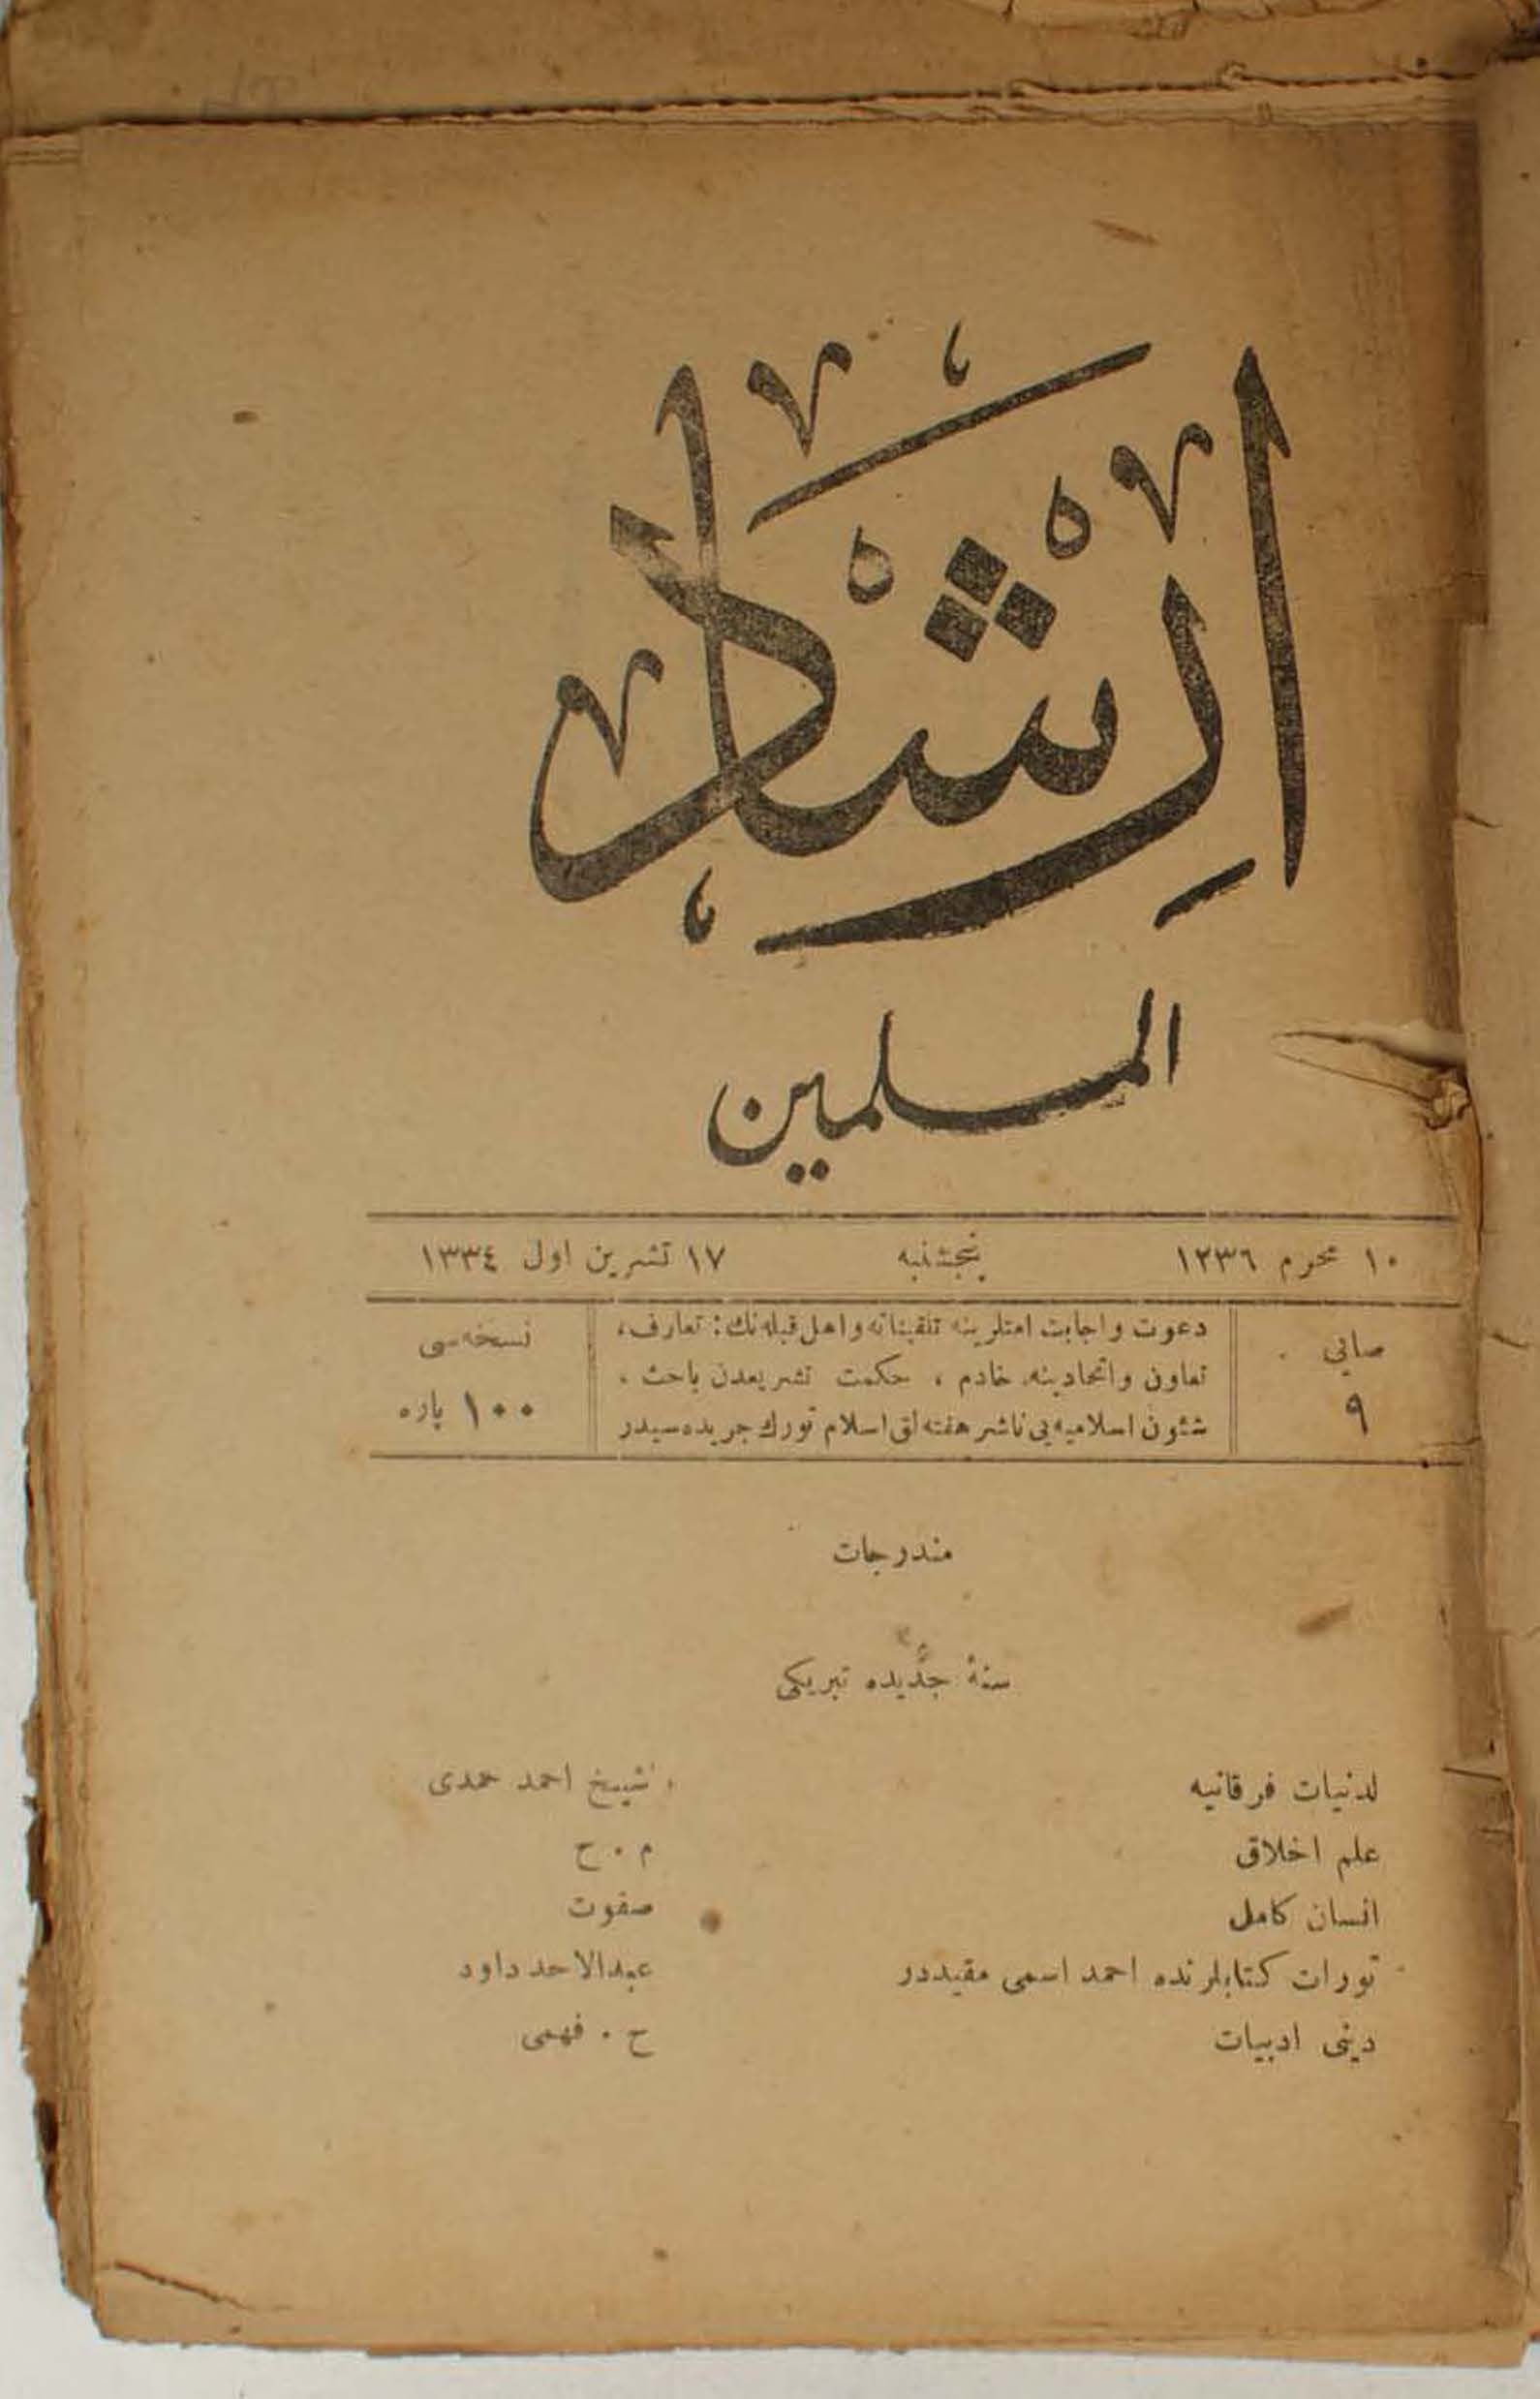 ارشاد
المسلمين
١٠ محرم ١٣٣٦ پنجشنبه ١٧ تشرين اول ١٣٣٤
صايى
٩
دعوت واجابت امتلرينه تلقيناته واهل قبله نك : تعارف،
تعاون واتحادينه خادم ، حكمت تشريعدن باحث ،
شئون اسلاميه يى ناشر هفته لق اسلام تورك جريده سيدر
نسخه سى
١٠٠ پاره
مندرجات
سنۀ جديده تبريكى
لدنيات فرقانيه شيخ احمد حمدى
علم اخلاق م . ح
انسان كامل صفوت
تورات كتابلرنده احمد اسمى مقيددر عبدالاحد داود
دينى ادبيات ح . فهمى